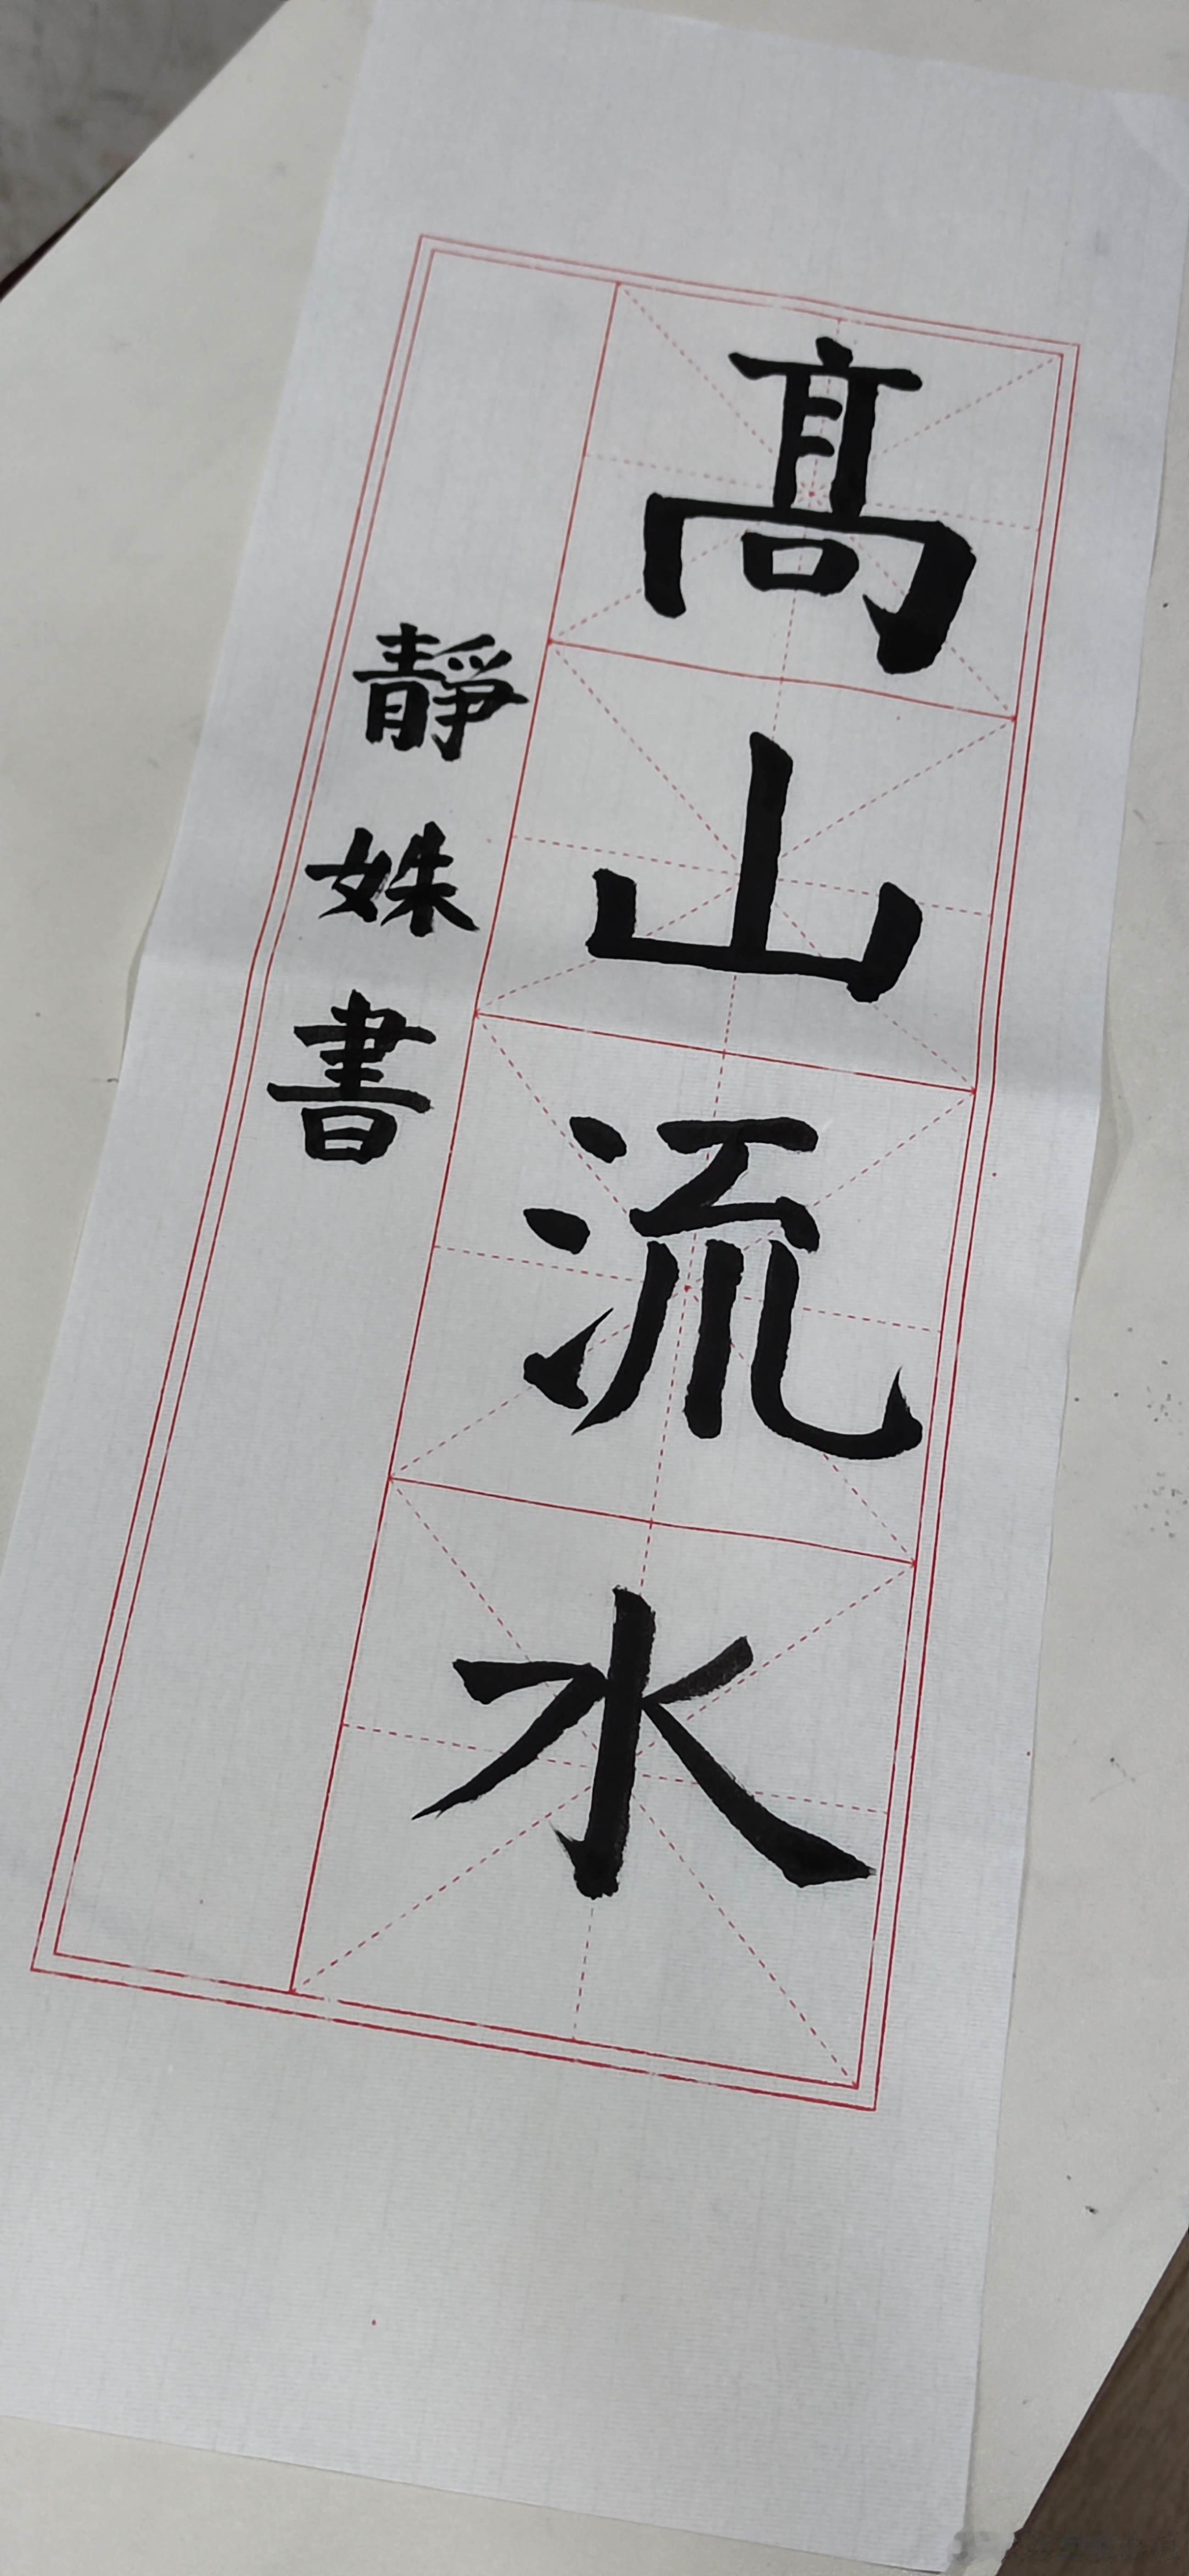 髙山流水
靜姝書